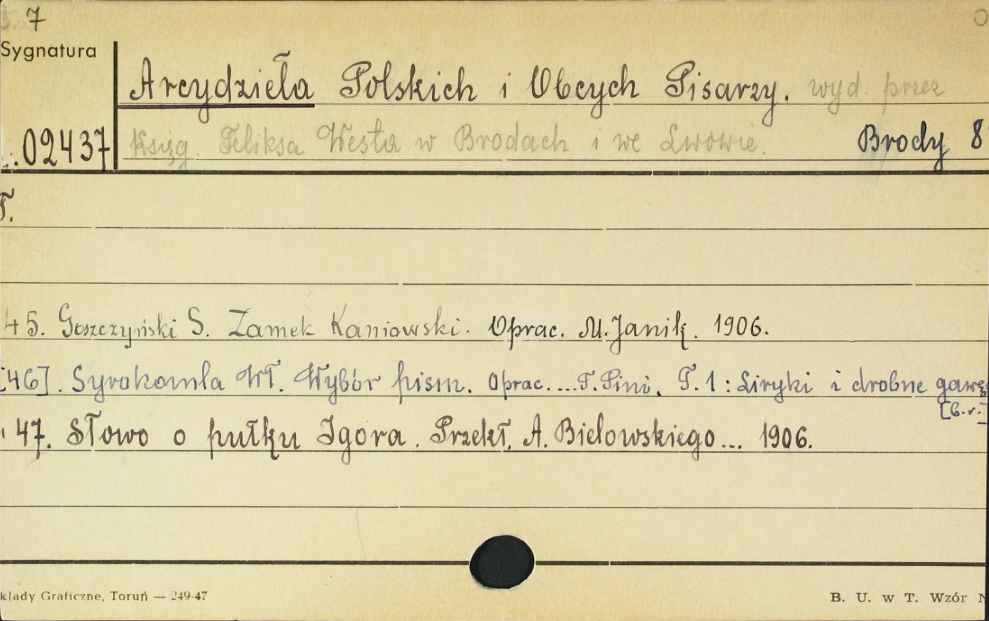 7
Sygnatura
Arcydzieła Polskich i Obcych Pisarzy. wyd. przez
02437 Księg. Feliksa Westa w Brodach i we Lwowie. Brody 8
T.
45. Goszczyński S. Zamek Kaniowski. Oprac. M. Janik. 1906.
[46]. Syrokomla Wł. Wybór pism. Oprac. ... T. Pini. T. 1: Liryki i drobne gawę
[b.r.]
47. Słowo o pułku Igora. Przekł. A. Bielowskiego ... 1906.
kłady Graficzne, Toruń — 249-47
B. U. w T. Wzór N